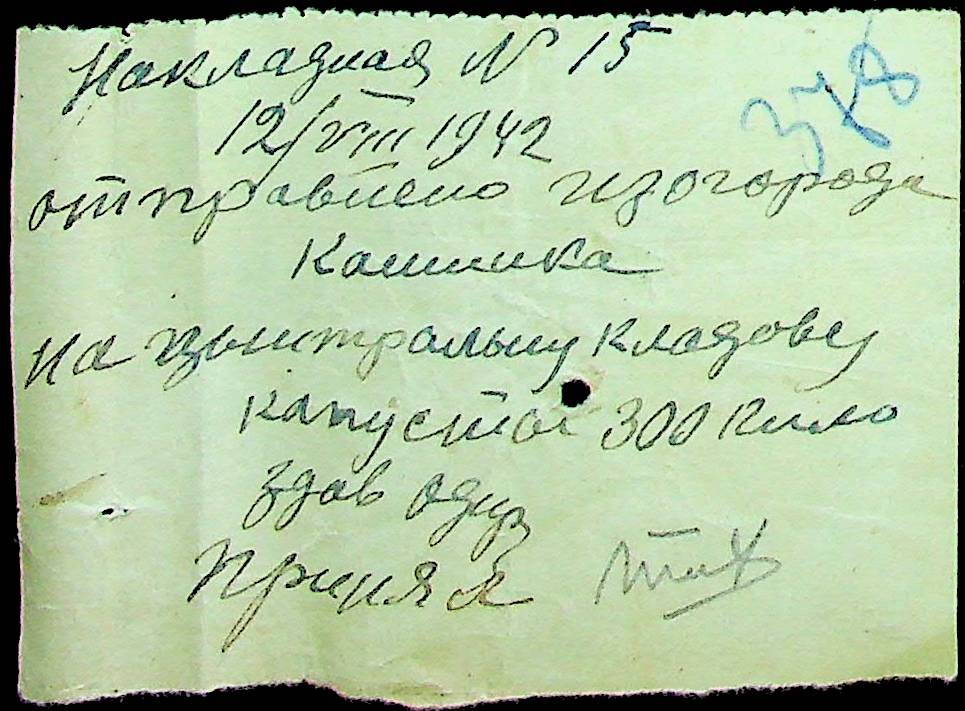 Накладная N 15
378
12/VIII 1942
отправлено изогорода
Камика
на цынтральну кладову
капусты 300 кило
здав
Принял